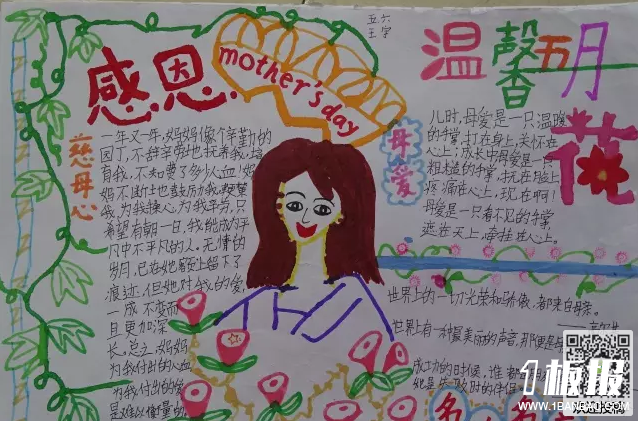 五六
王宇
感恩
mother's day
温馨五月花
慈母心
一年又一年,妈妈像个辛勤的
园丁,不辞辛劳地抚养我,培
育我,不知费了多少心血!妈
妈不断地鼓励我,
我,为我操心,为我辛劳,只
希望有朝一日,我能成为平
凡中不平凡的人。无情的
岁月,已在她额上留下了
痕迹,但她对我的爱,
一成不变而
且更加深
长。总之,妈妈
为我付出的心血
为我付出的爱
是难以衡量的
母爱
儿时,母爱是一只温暖
的手掌,打在身上,关怀在
心上;成长中母爱是一只
粗糙的手掌,抚在脸上
疼痛在心上,现在啊!
母爱是一只看不见的手掌
遮在天上,牵挂在心上。
世界上的一切光荣和骄傲,都来自母亲。
世界上有一种最美丽的声音,那便是母
成功的时候,谁都
她是失败时的伴侣
1板报
WWW.1BANBAO.COM